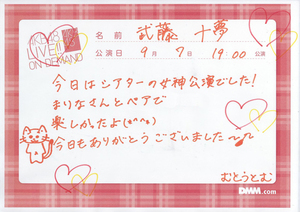 AKB48
LIVE!!
ON DEMAND
名前 武藤 十夢
公演日 9月7日 19:00公演
今日はシアターの女神公演でした!
まりなさんとペアで
楽しかったよ(o^^o)
今日もありがとうございました〜♪
むとうとむ
DMM.com